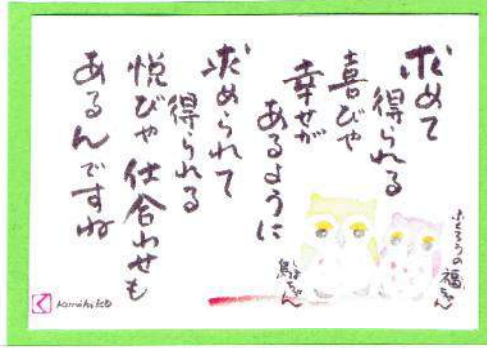 求めて
得られる
喜びや
幸せが
あるように
求められて
得られる
悦びや仕合わせも
あるんですね
ふくろうの福ちゃん